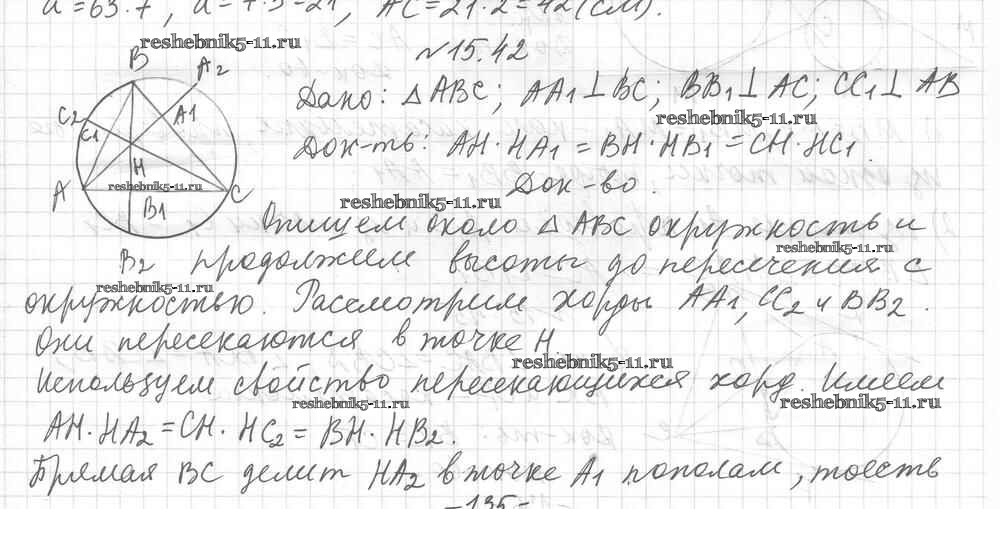 a = 63:7, a = 7·3=21, AC=21·2=42(см).
reshebnik5-11.ru
№15.42
B
A2
C2
C1
A1
H
A
C
B1
B2
Дано: △ABC; AA1⊥BC; BB1⊥AC; CC1⊥AB
reshebnik5-11.ru
Док-ть: AH·HA1 = BH·HB1 = CH·HC1.
reshebnik5-11.ru
Док-во.
reshebnik5-11.ru
Впишем около △ABC окружность и
reshebnik5-11.ru
продолжим высоты до пересечения с
reshebnik5-11.ru
окружностью. Рассмотрим хорды AA1, CC2 и BB2.
Они пересекаются в точке H.
reshebnik5-11.ru
Используем свойство пересекающихся хорд. Имеем
reshebnik5-11.ru
reshebnik5-11.ru
AH·HA2=CH·HC2=BH·HB2.
Прямая BC делит HA2 в точке A1 пополам, тоесть
-135-